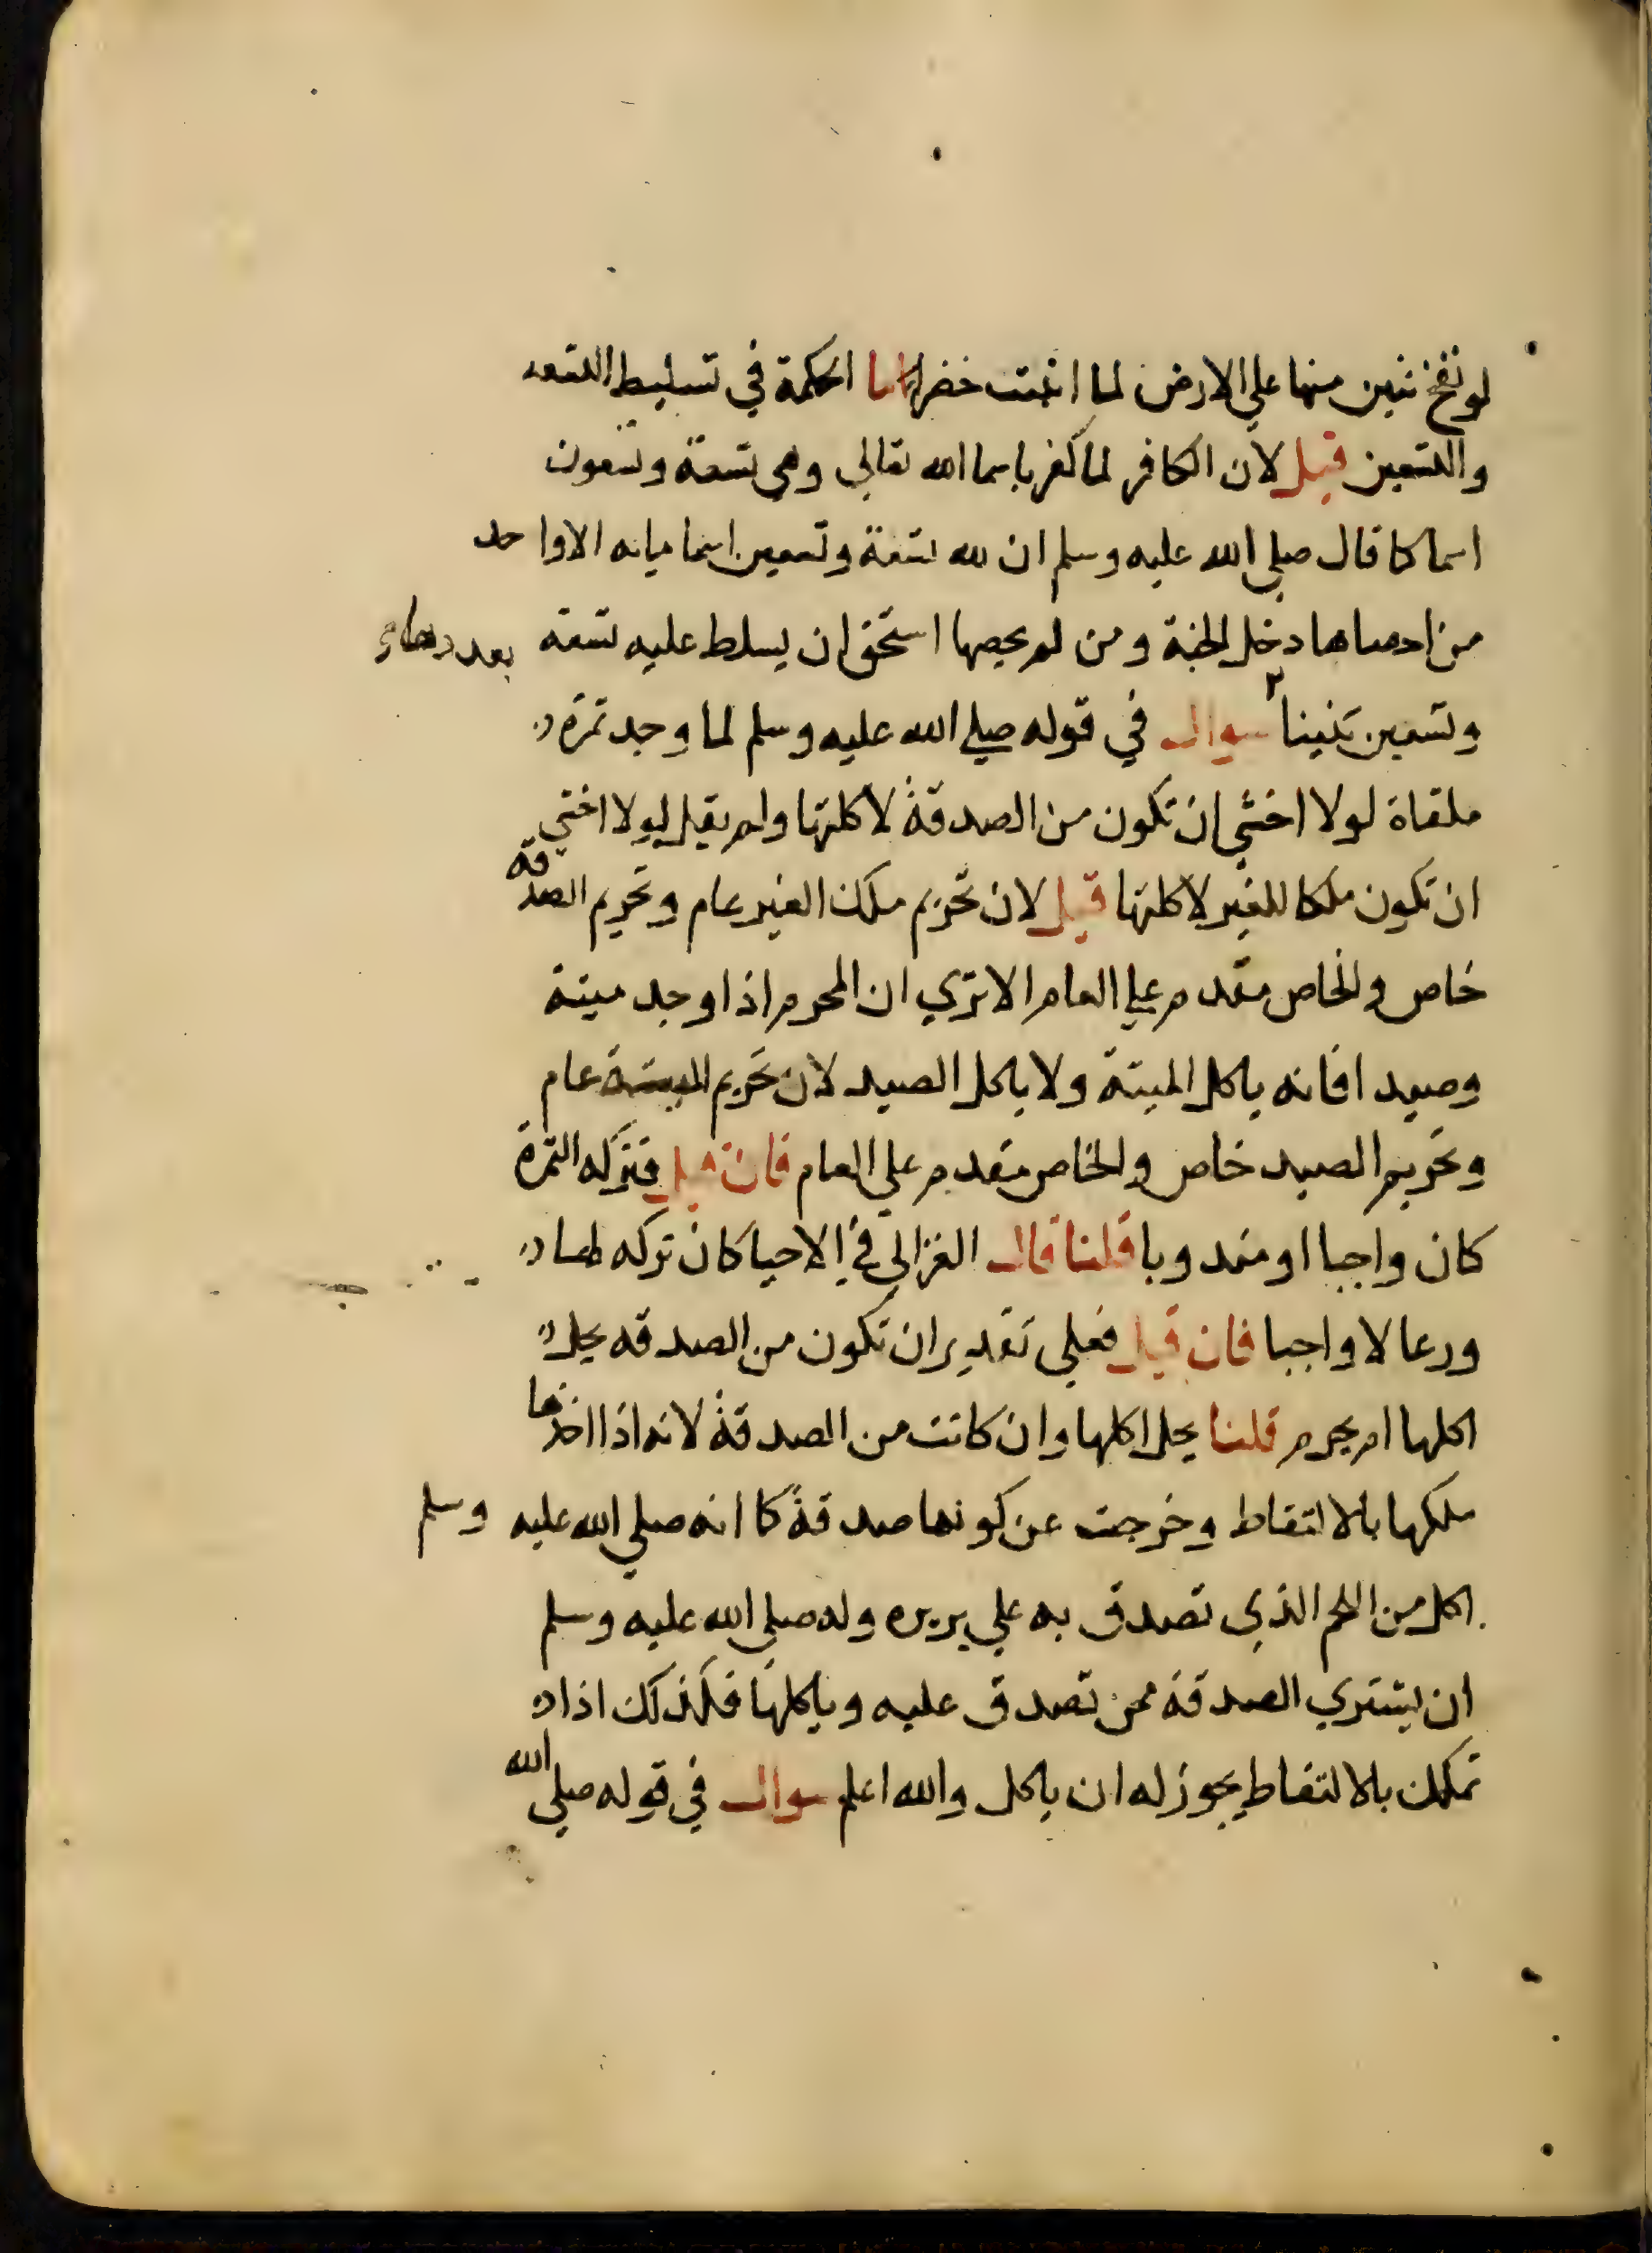 لو نفخ تنين منها علي الارض لما انبتت خضرا ما الحكمة في تسليط التسعه
والتسعين قيل لان الكافر لما كفر باسما الله تعالي وهي تسعة وتسعون
اسما كما قال صلي الله عليه وسلم ان لله تسعة وتسعين اسما مايه الا واحد
من احصاها دخل الجنة ومن لم يحصها استحق ان يسلط عليه تسعة بعددها
وتسعين تنينا سوال في قوله صلي الله عليه وسلم لما وجد تمرة
ملقاة لولا اخشي ان تكون من الصدقة لاكلتها ولم يقل لولا اخشي
ان تكون ملكا للغير لاكلتها قيل لان تحريم ملك الغير عام وتحريم الصدقة
خاص والخاص مقدم علي العام الا تري ان المحرم اذا وجد ميتة
وصيدا فانه ياكل الميتة ولا ياكل الصيد لان تحريم الميتة عام
وتحريم الصيد خاص والخاص مقدم علي العام فان قيل فتركه التمرة
كان واجبا او مندوبا قلنا قال الغزالي في الاحيا كان تركه لها
ورعا لا واجبا فان قيل فعلي تقدير ان تكون من الصدقه يحل
اكلها ام يحرم قلنا يحل اكلها وان كانت من الصدقة لانه اذا اخذها
ملكها بالالتقاط وخرجت عن كونها صدقة كما انه صلي الله عليه وسلم
اكل من اللحم الذي تصدق به علي بريره وله صلي الله عليه وسلم
ان يشتري الصدقة ممن تصدق عليه وياكلها فكذلك اذا
تملك بالالتقاط يجوز له ان ياكل والله اعلم سوال في قوله صلي الله